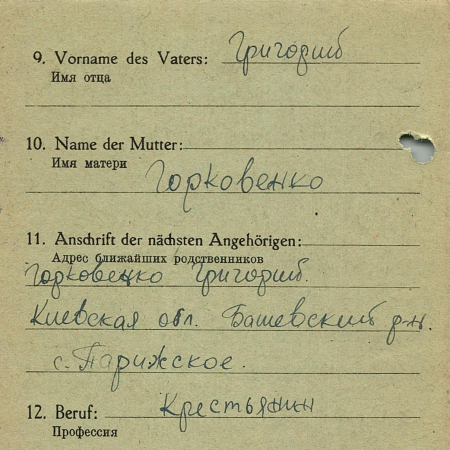 9. Vorname des Vaters: Григорий
Имя отца
10. Name der Mutter:
Имя матери Горковенко
11. Anschrift der nächsten Angehörigen:
Адрес ближайших родственников
Горковенко Григорий.
Киевская обл. Башевский р-н.
с. Парижское.
12. Beruf: Крестьянин
Профессия